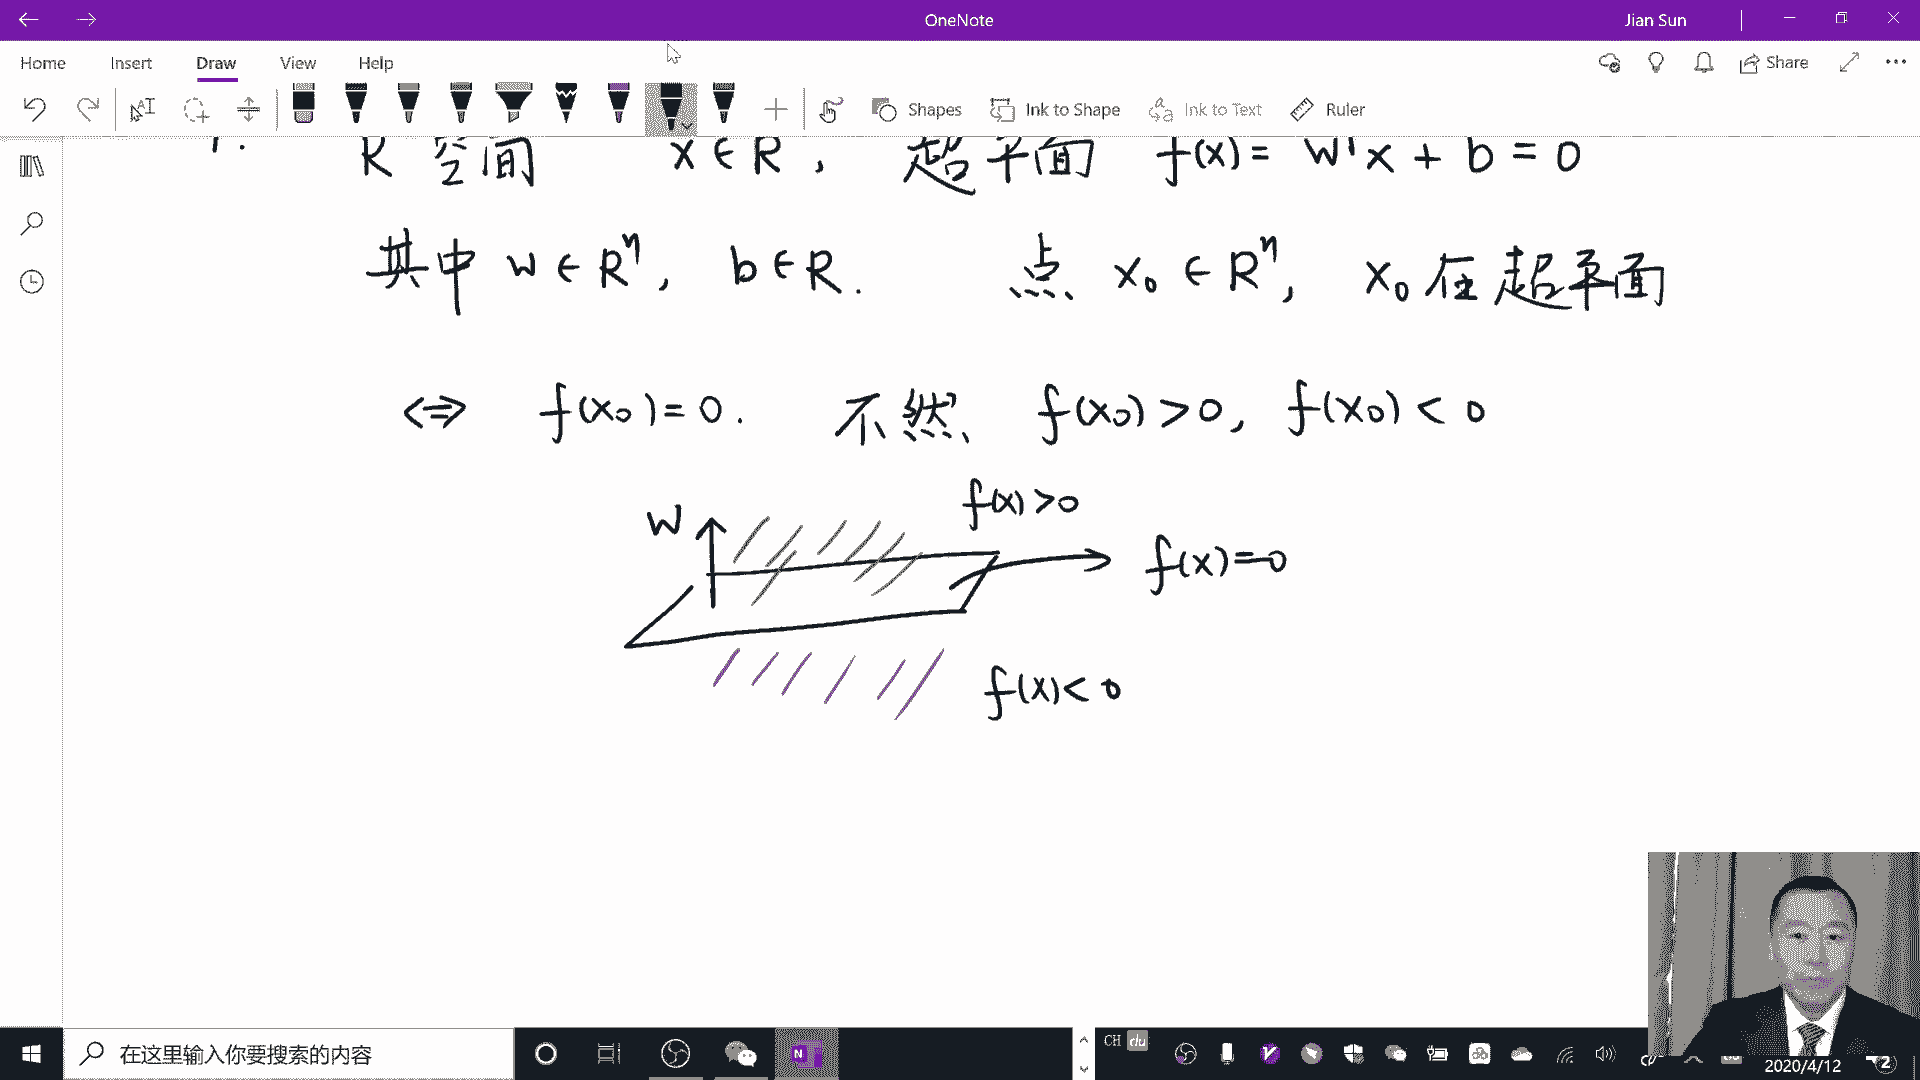 OneNote
Jian Sun
Home Insert Draw View Help
Share
Shapes Ink to Shape Ink to Text Ruler
1. R 空间 x ∈ R, 超平面 f(x) = wᵀx + b = 0
其中 w ∈ Rⁿ, b ∈ R. 点 x₀ ∈ Rⁿ, x₀ 在超平面
<=> f(x₀) = 0. 不然 f(x₀) > 0, f(x₀) < 0
f(x) > 0
W
f(x) = 0
f(x) < 0
在这里输入你要搜索的内容
CH
2020/4/12
2